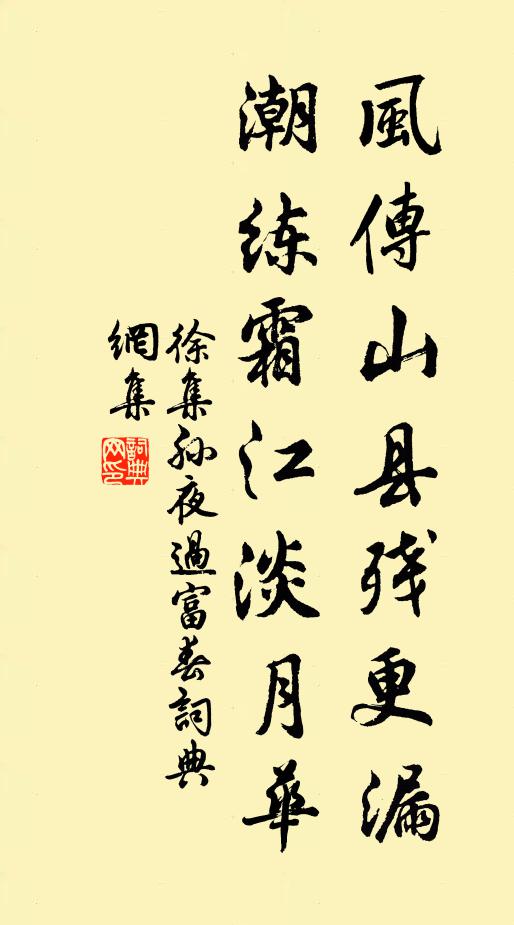 風傳山县残更漏
潮练霜江淡月華
徐集孙夜過富春詞典
網集
詞典
网印